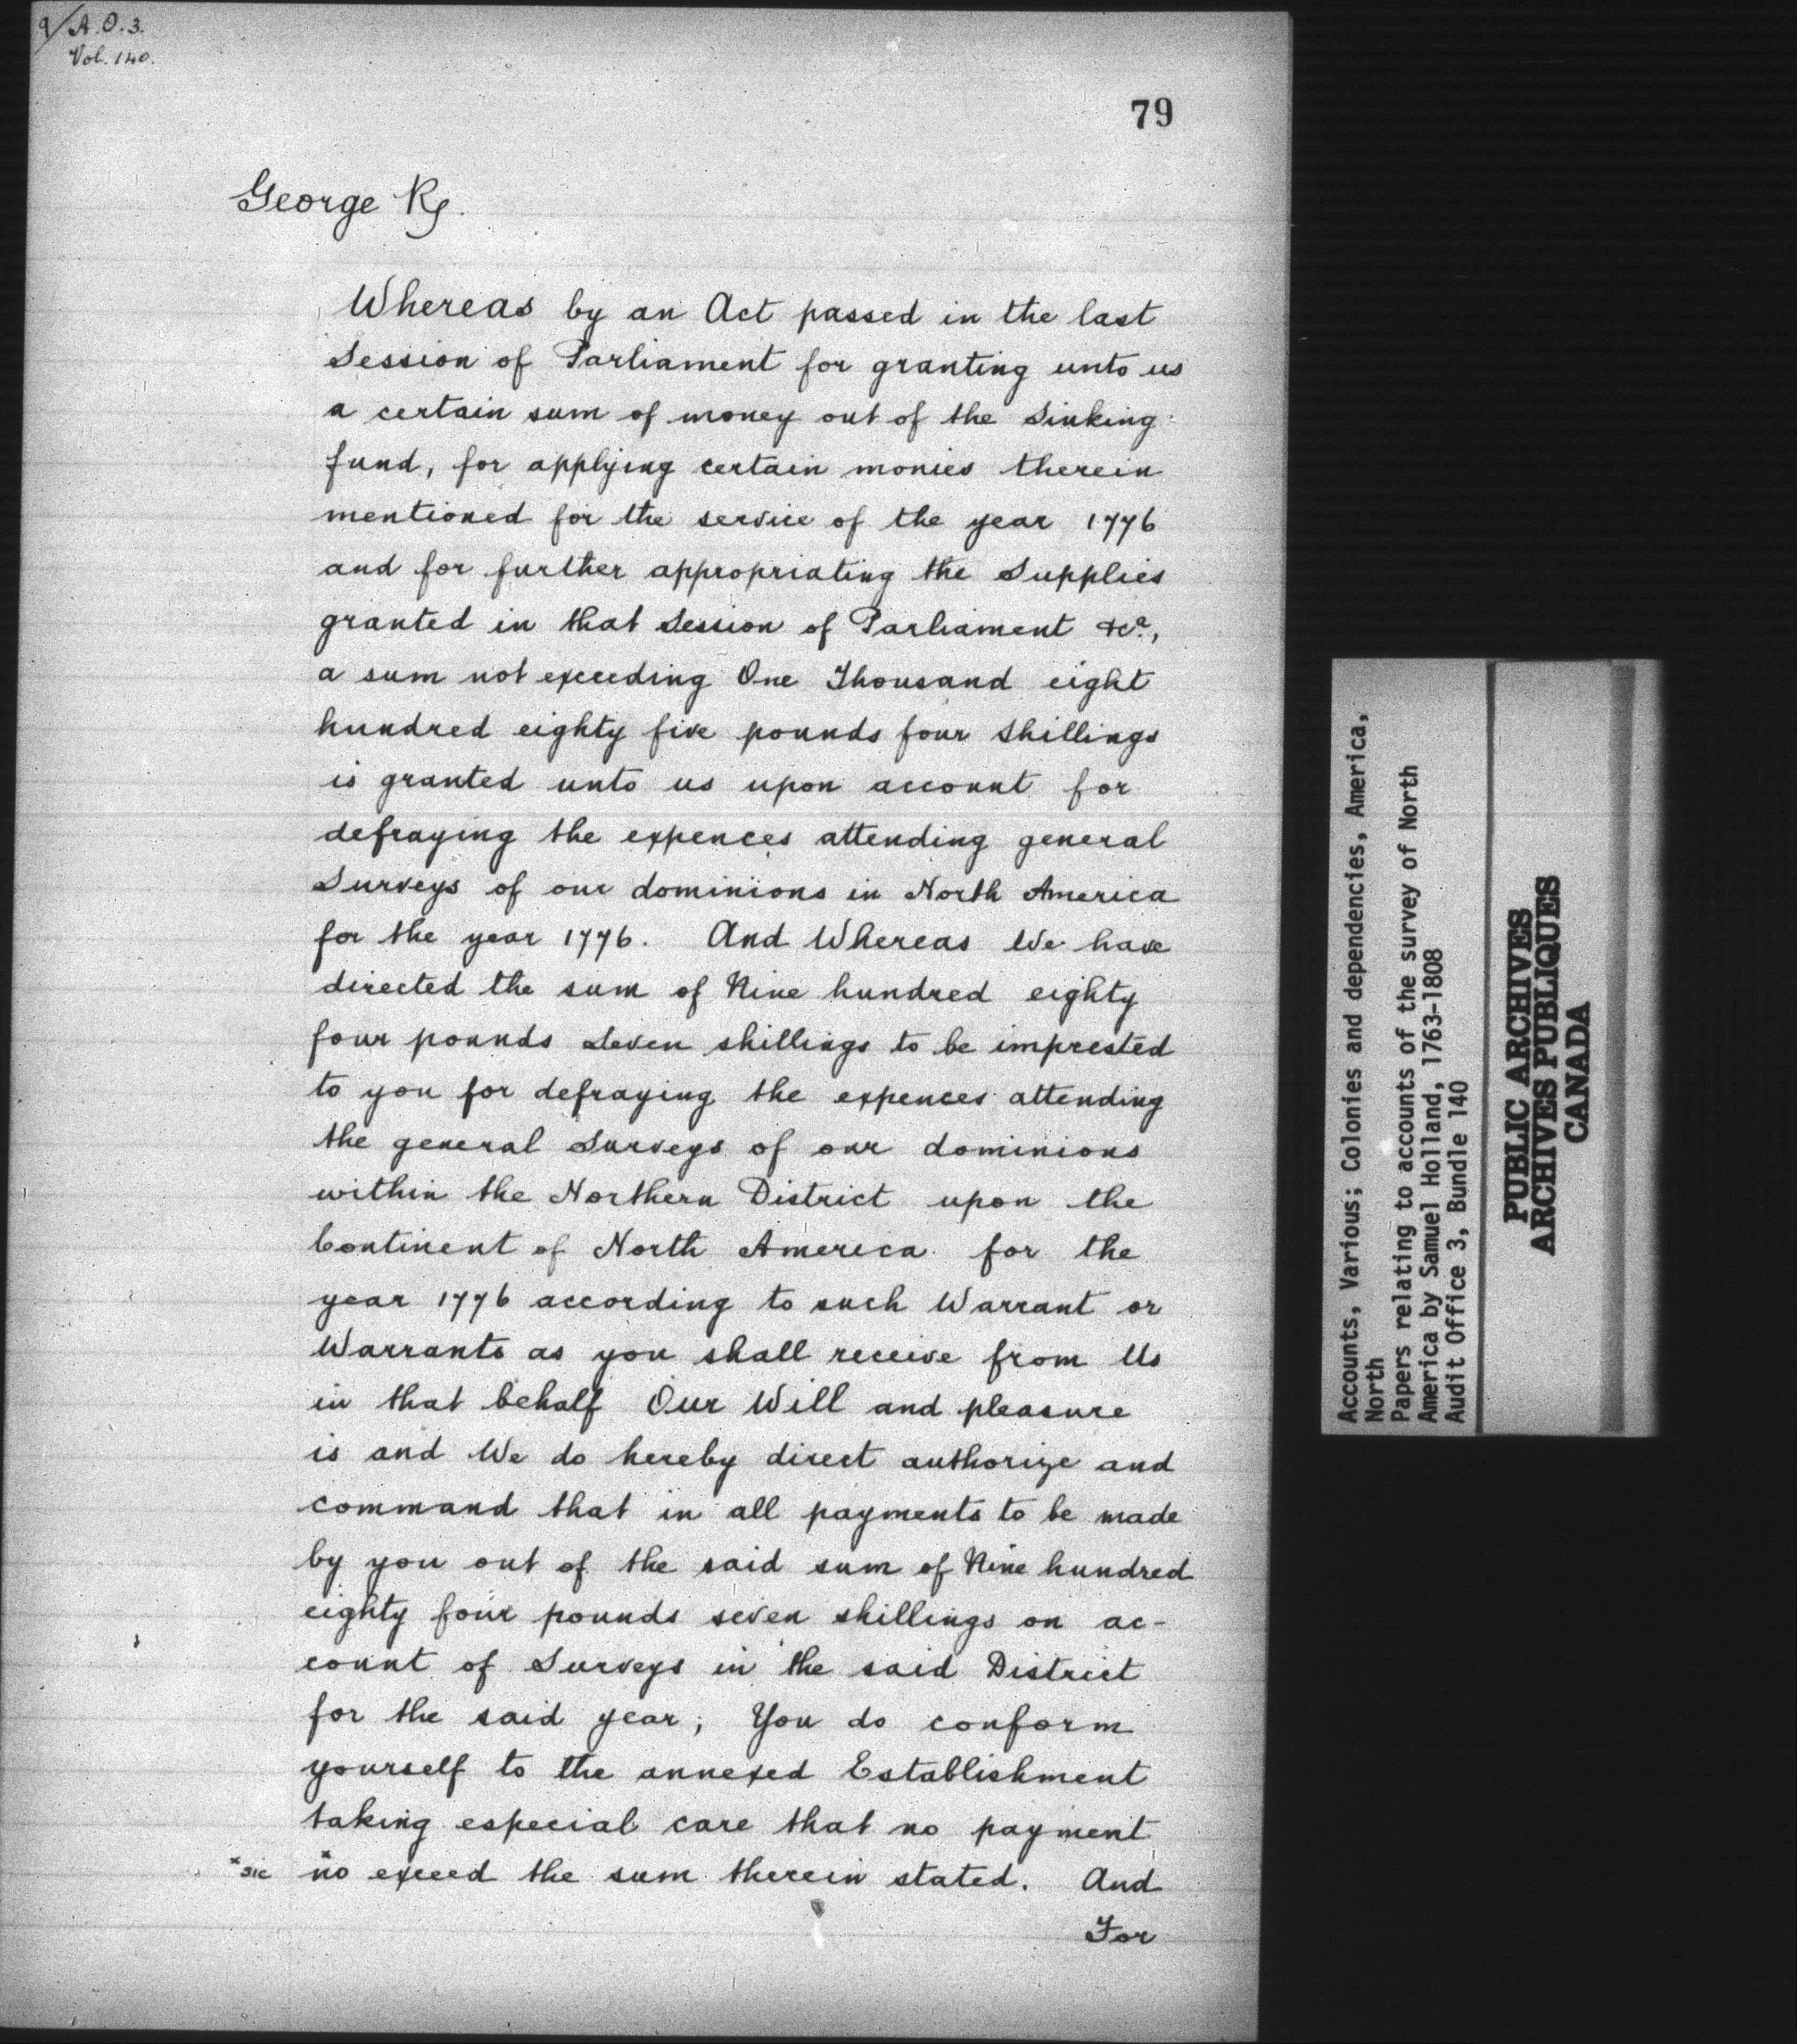 9/A.O.3.
Vol. 140.
79
George R
Whereas by an Act passed in the last
Session of Parliament for granting unto us
a certain sum of money out of the Sinking
fund, for applying certain monies therein
mentioned for the service of the year 1776
and for further appropriating the Supplies
granted in that Session of Parliament &ca.,
a sum not exceeding One Thousand eight
hundred eighty five pounds four Shillings
is granted unto us upon account for
defraying the expences attending general
Surveys of our dominions in North America
for the year 1776. And Whereas We have
directed the sum of Nine hundred eighty
four pounds Seven shillings to be imprested
to you for defraying the expences attending
the general Surveys of our dominions
within the Northern District upon the
Continent of North America for the
year 1776 according to such Warrant or
Warrants as you shall receive from Us
in that behalf Our Will and pleasure
is and We do hereby direct authorize and
command that in all payments to be made
by you out of the said sum of Nine hundred
eighty four pounds seven shillings on ac-
count of Surveys in the said District
for the said year; You do conform
yourself to the annexed Establishment
taking especial care that no payment
*sic *no exceed the sum therein stated. And
For
Accounts, Various; Colonies and dependencies, America,
North
Papers relating to accounts of the survey of North
America by Samuel Holland, 1763-1808
Audit Office 3, Bundle 140
PUBLIC ARCHIVES
ARCHIVES PUBLIQUES
CANADA